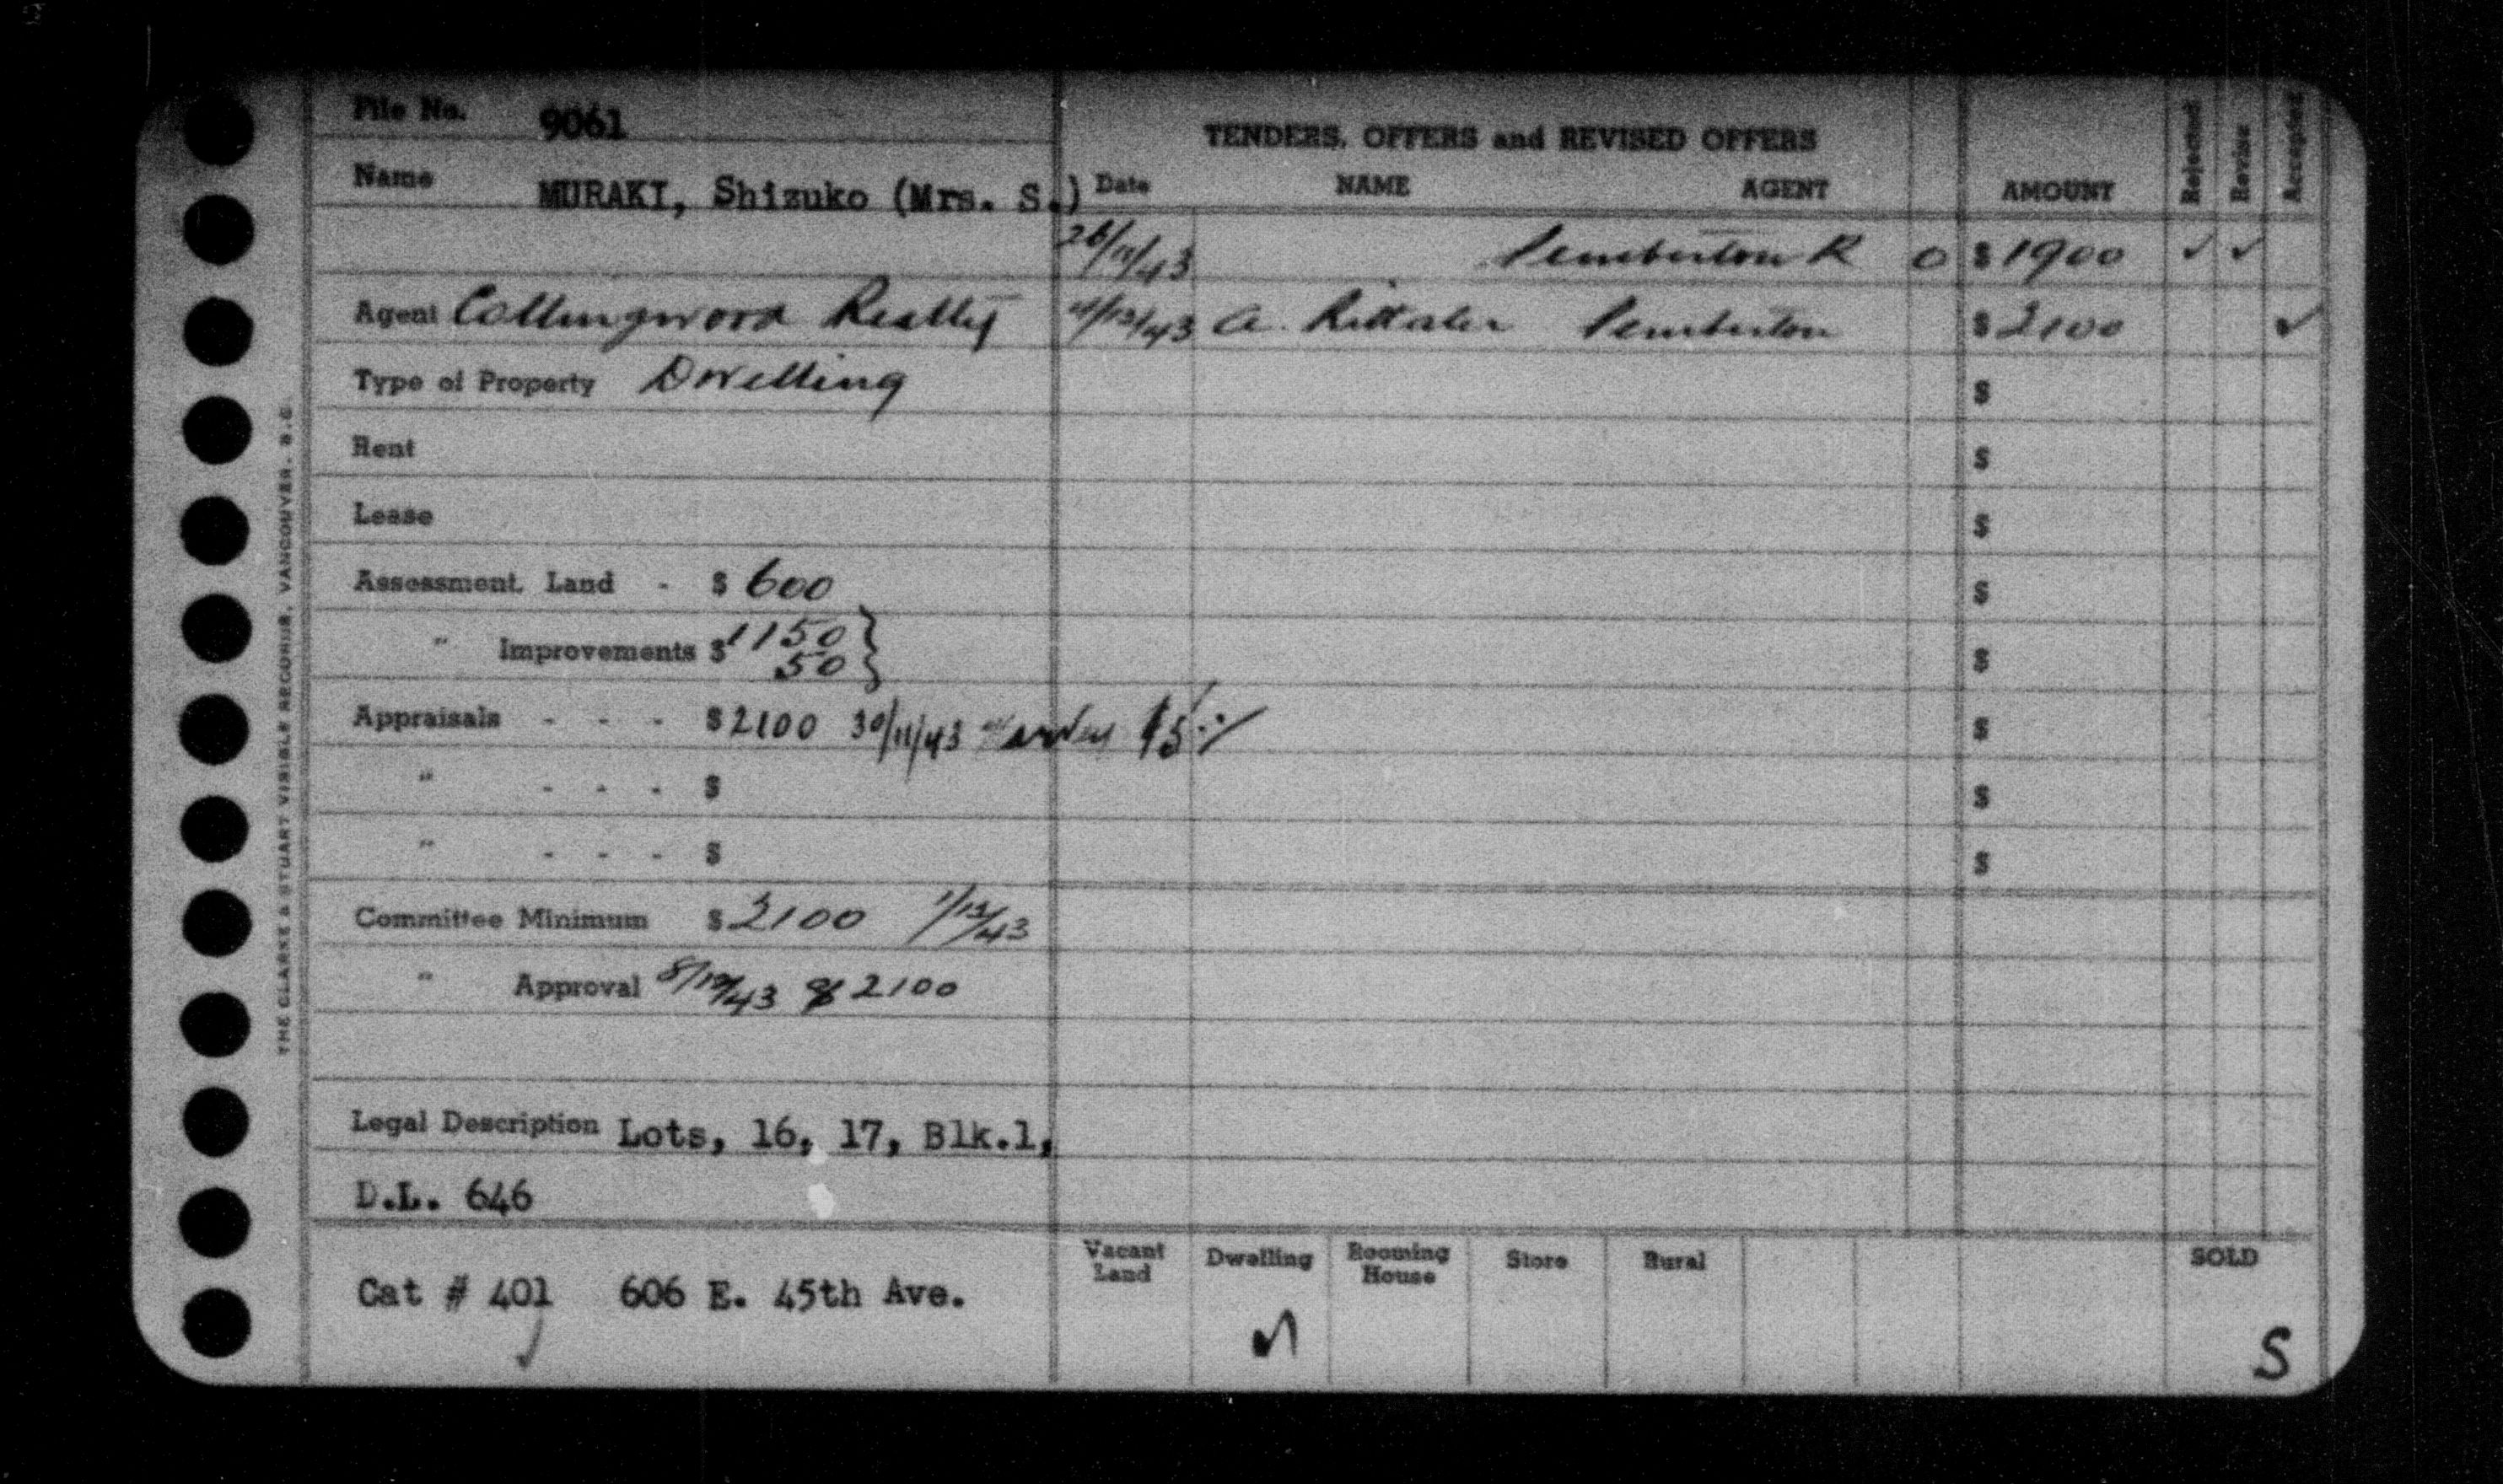 File No. 9061
Name MURAKI, Shizuko (Mrs. S.)
Agent Collingwood Realty
Type of Property Dwelling
Rent
Lease
Assessment. Land - $ 600
" Improvements $ 1150 }
50 }
Appraisals - - - $ 2100 30/11/43 $5
" - - - $
" - - - $
Committee Minimum $ 2100 1/12/43
" Approval 8/12/43 @ 2100
Legal Description Lots, 16, 17, Blk.1,
D.L. 646
Cat # 401 606 E. 45th Ave.
THE CLARKE & STUART VISIBLE RECORDS, VANCOUVER, B.C.
TENDERS, OFFERS and REVISED OFFERS
Date NAME AGENT AMOUNT Rejected Revise Accepted
26/11/43 Pemberton R O $ 1900 ✓ ✓
/12/43 A. Pemberton $ 2100 ✓
$
$
$
$
$
$
$
$
Vacant Land Dwelling Rooming House Store Rural SOLD
✓ S